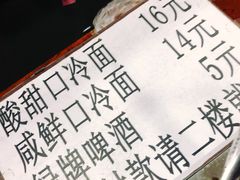 酸甜口冷面 16元
咸鲜口冷面 14元
绿牌啤酒 5元
款请二楼